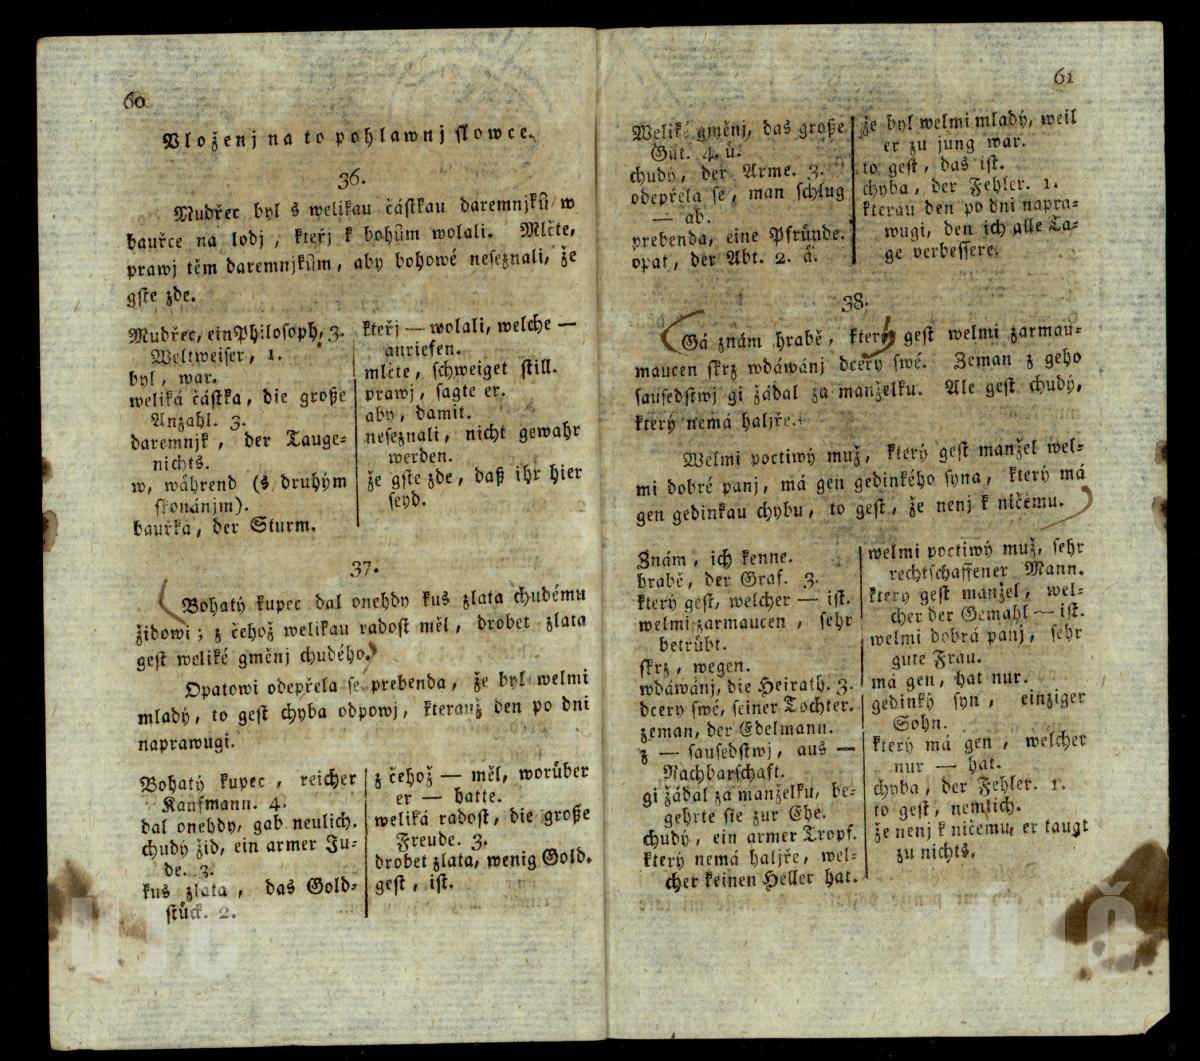 60
Vloženj na to pohlawnj slowce.
36.
Mudřec byl s welikau částkau daremnjků w
bauřce na lodj, kteřj k bohům wolali. Mlčte,
prawj těm daremnjkům, aby bohowé neseznali, že
gste zde.
Mudřec, ein Philosoph, 3.
Weltweiser, 1.
byl, war.
weliká částka, die große
Anzahl. 3.
daremnjk, der Tauge=
nichts.
w, während (s druhým
skonánjm).
bauřka, der Sturm.
kteřj — wolali, welche —
anriefen.
mlčte, schweiget still.
prawj, sagte er.
aby, damit.
neseznali, nicht gewahr
werden.
že gste zde, daß ihr hier
seyd.
37.
Bohatý kupec dal onehdy kus zlata chudému
židowi; z čehož welikau radost měl, drobet zlata
gest weliké gměnj chudého.
Opatowi odepřela se prebenda, že byl welmi
mladý, to gest chyba odpowj, kterauž den po dni
naprawugi.
Bohatý kupec, reicher
Kaufmann. 4.
dal onehdy, gab neulich.
chudý žid, ein armer Ju=
de. 3.
kus zlata, das Gold=
stück. 2.
z čehož — měl, worüber
er — hatte.
weliká radost, die große
Freude. 3.
drobet zlata, wenig Gold.
gest, ist.
61
Weliké gměnj, das große
Gut. 4. ü.
chudý, der Arme. 3.
odepřela se, man schlug
— ab.
prebenda, eine Pfründe.
opat, der Abt. 2. ä.
že byl welmi mladý, weil
er zu jung war.
to gest, das ist.
chyba, der Fehler. 1.
kterau den po dni napra=
wugi, den ich alle Ta=
ge verbessere.
38.
Gá znám hrabě, který gest welmi zarmau=
maucen skrz wdáwánj dcery swé. Zeman z geho
sausedstwj gi žádal za manželku. Ale gest chudý,
který nemá haljře.
Welmi poctiwý muž, který gest manžel wel=
mi dobré panj, má gen gedinkého syna, který má
gen gedinkau chybu, to gest, že nenj k ničemu.
Znám, ich kenne.
hrabě, der Graf. 3.
který gest, welcher — ist.
welmi zarmaucen, sehr
betrübt.
skrz, wegen.
wdáwánj, die Heirath. 3.
dcery swé, seiner Tochter.
zeman, der Edelmann.
z — sausedstwj, aus —
Nachbarschaft.
gi žádal za manželku, be=
gehrte sie zur Ehe.
chudý, ein armer Tropf.
který nemá haljře, wel=
cher keinen Heller hat.
welmi poctiwý muž, sehr
rechtschaffener Mann.
který gest manžel, wel=
cher der Gemahl — ist.
welmi dobrá panj, sehr
gute Frau.
má gen, hat nur.
gedinký syn, einziger
Sohn.
který má gen, welcher
nur — hat.
chyba, der Fehler. 1.
to gest, nemlich.
že nenj k ničemu, er taugt
zu nichts.
ÚJČ
ÚJČ